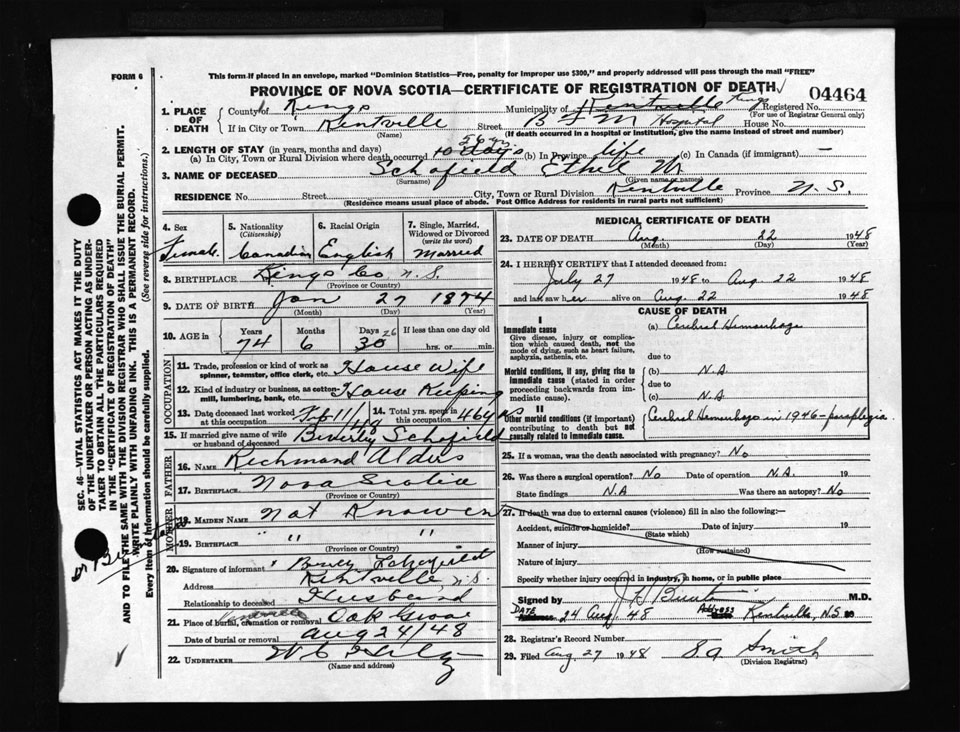 FORM 6
This form if placed in an envelope, marked "Dominion Statistics—Free, penalty for improper use $300," and properly addressed will pass through the mail "FREE"
PROVINCE OF NOVA SCOTIA—CERTIFICATE OF REGISTRATION OF DEATH
04464
1. PLACE OF DEATH
County of Kings Municipality of Kentville Kings Registered No.
(For use of Registrar General only)
If in City or Town Kentville Street B F M Hospital House No.
(Name) (If death occurred in a hospital or institution, give the name instead of street and number)
2. LENGTH OF STAY (in years, months and days)
(a) In City, Town or Rural Division where death occurred 10 days (b) In Province life (c) In Canada (if immigrant) —
3. NAME OF DECEASED Schofield Ethel M
(Surname) (Given name or names)
RESIDENCE No. Street City, Town or Rural Division Kentville Province N.S.
(Residence means usual place of abode. Post Office Address for residents in rural parts not sufficient)
SEC. 46—VITAL STATISTICS ACT MAKES IT THE DUTY
OF THE UNDERTAKER OR PERSON ACTING AS UNDER-
TAKER TO OBTAIN ALL THE PARTICULARS REQUIRED
IN THE "CERTIFICATE OF REGISTRATION OF DEATH"
AND TO FILE THE SAME WITH THE DIVISION REGISTRAR WHO SHALL ISSUE THE BURIAL PERMIT.
WRITE PLAINLY WITH UNFADING INK. THIS IS A PERMANENT RECORD.
Every item of information should be carefully supplied. (See reverse side for instructions.)
4. Sex
Female
5. Nationality
(Citizenship)
Canadian
6. Racial Origin
English
7. Single, Married,
Widowed or Divorced
(write the word)
Married
8. BIRTHPLACE Kings Co N.S.
(Province or Country)
9. DATE OF BIRTH Jan 27 1874
(Month) (Day) (Year)
10. AGE in
Years Months Days 26 If less than one day old
74 6 30 hrs. or min.
OCCUPATION
11. Trade, profession or kind of work as
spinner, teamster, office clerk, etc. House Wife
12. Kind of industry or business, as cotton-
mill, lumbering, bank, etc. House Keeping
13. Date deceased last worked
at this occupation Feb 11/48
14. Total yrs. spent in
this occupation 46 yrs
15. If married give name of wife
or husband of deceased Beverley Schofield
FATHER
16. NAME Richmond
17. BIRTHPLACE Nova Scotia
(Province or Country)
MOTHER
18. MAIDEN NAME Not Known
19. BIRTHPLACE " "
(Province or Country)
20. Signature of informant
Address Kentville N.S.
Relationship to deceased Husband
21. Place of burial, cremation or removal Oak Grove
Date of burial or removal Aug 24/48
22. UNDERTAKER
(Name and address)
MEDICAL CERTIFICATE OF DEATH
23. DATE OF DEATH Aug. 22 1948
(Month) (Day) (Year)
24. I HEREBY CERTIFY that I attended deceased from:
July 27 1948 to Aug. 22 1948
and last saw her alive on Aug. 22 1948
CAUSE OF DEATH
I
Immediate cause
Give disease, injury or complica-
tion which caused death, not the
mode of dying, such as heart failure,
asphyxia, asthenia, etc.
(a) Cerebral Hemorrhage
due to
Morbid conditions, if any, giving rise to
immediate cause (stated in order
proceeding backwards from im-
mediate cause).
(b) N.A
due to
(c) N.A
II
Other morbid conditions (if important)
contributing to death but not
causally related to immediate cause.
Cerebral Hemorrhage in 1946 – paraplegia
25. If a woman, was the death associated with pregnancy? No
26. Was there a surgical operation? No Date of operation N.A. 19
State findings N.A Was there an autopsy? No
27. If death was due to external causes (violence) fill in also the following:—
Accident, suicide or homicide? Date of injury 19
(State which)
Manner of injury
(How sustained)
Nature of injury
Specify whether injury occurred in industry, in home, or in public place
Signed by M.D.
DATE 24 Aug. 48 Address Kentville, N.S.
28. Registrar's Record Number
29. Filed Aug 27 1948 Smith
(Division Registrar)